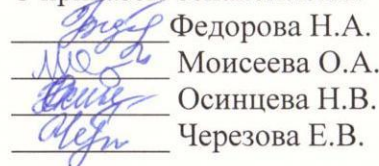 Федорова Н.А.
Моисеева О.А.
Осинцева Н.В.
Черезова Е.В.